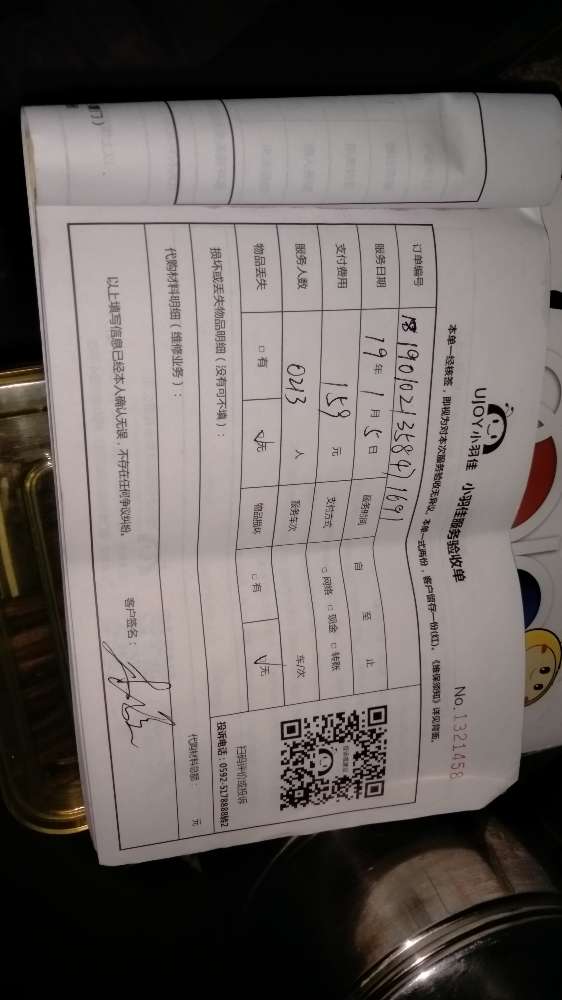 UJOY小羽佳 小羽佳服务验收单
No.1321458
本单一经核签，即视为对本次服务验收无异议。本单一式两份，客户留存一份(红)。《维保须知》详见背面。
订单编号 1901021358471691
服务日期 19年1月5日 服务时间 自 至 止
支付费用 159元 支付方式 □网络 □现金 □转账
服务人数 0213 人 服务车次 车/次
物品丢失 □有 ☑无 物品损坏 □有 ☑无
扫码评价或投诉
投诉电话：0592-5178888转2
损坏或丢失物品明细（没有可不填）：
代购材料明细（维修业务）：
代购材料总额： 元
以上填写信息已经本人确认无误，不存在任何争议纠纷。
客户签名：